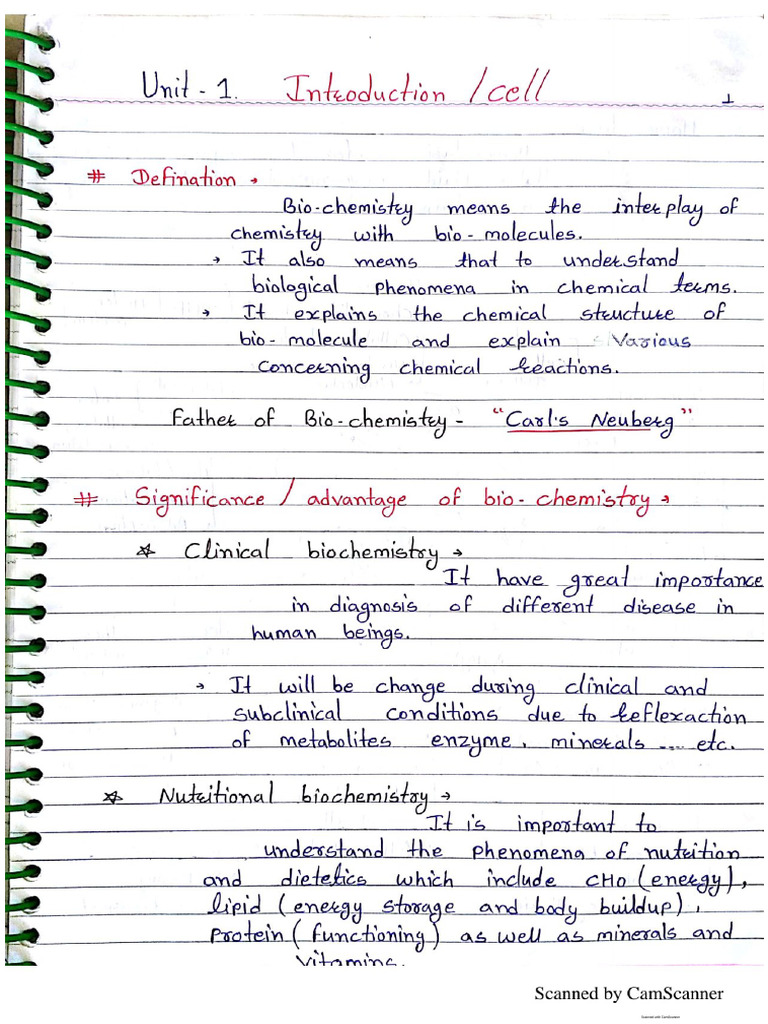 Unit - 1. Introduction / cell
1
# Defination →
Bio-chemistry means the interplay of
chemistry with bio-molecules.
→ It also means that to understand
biological phenomena in chemical terms.
→ It explains the chemical structure of
bio-molecule and explain various
concerning chemical reactions.
Father of Bio-chemistry - "Carl's Neuberg"
# Significance / advantage of bio-chemistry →
☆ Clinical biochemistry →
It have great importance
in diagnosis of different disease in
human beings.
→ It will be change during clinical and
subclinical conditions due to reflexaction
of metabolites enzyme, minerals .... etc.
☆ Nutritional biochemistry →
It is important to
understand the phenomena of nutrition
and dietetics which include CHO (energy),
lipid (energy storage and body buildup),
protein (functioning) as well as minerals and
vitamins.
Scanned by CamScanner
Scanned with CamScanner